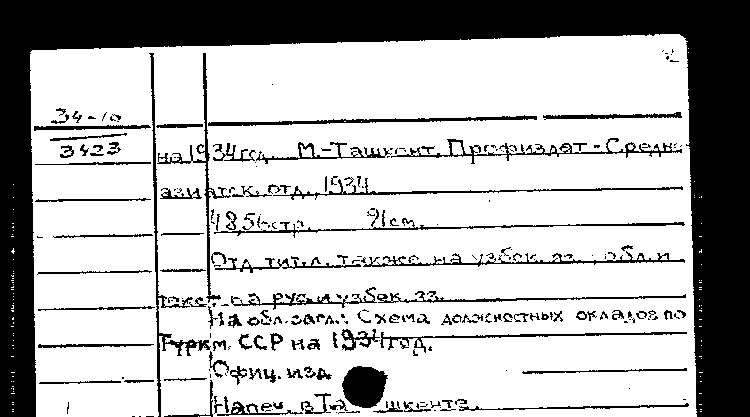 34-10
3423
на 1934 год. М.-Ташкент, Профиздат - Средне-
азиатск. отд., 1934.
48,56 стр. 21 см.
Отд. тит. л. также на узбек. яз., обл. и
текст на рус. и узбек. яз.
На обл. загл.: Схема должностных окладов по
Туркм. ССР на 1934 год.
Офиц. изд.
Напеч. в Ташкенте.